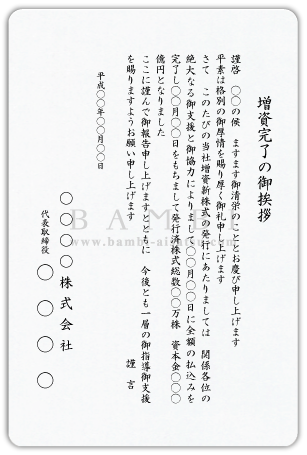 増資完了の御挨拶
謹啓　〇〇の候　ますます御清栄のこととお慶び申し上げます
平素は格別の御厚情を賜り厚く御礼申し上げます
さて　このたびの当社増資新株式の発行にあたりましては　関係各位の
絶大なる御支援と御協力によりまして〇〇月〇〇日に全額の払込みを
完了し〇〇月〇〇日をもちまして発行済株式総数〇〇万株　資本金〇〇〇
億円となりました
ここに謹んで御報告申し上げますとともに　今後とも一層の御指導御支援
を賜りますようお願い申し上げます
謹　言
平成〇〇年〇〇月〇〇日
〇〇〇〇〇株式会社
代表取締役　〇〇〇〇